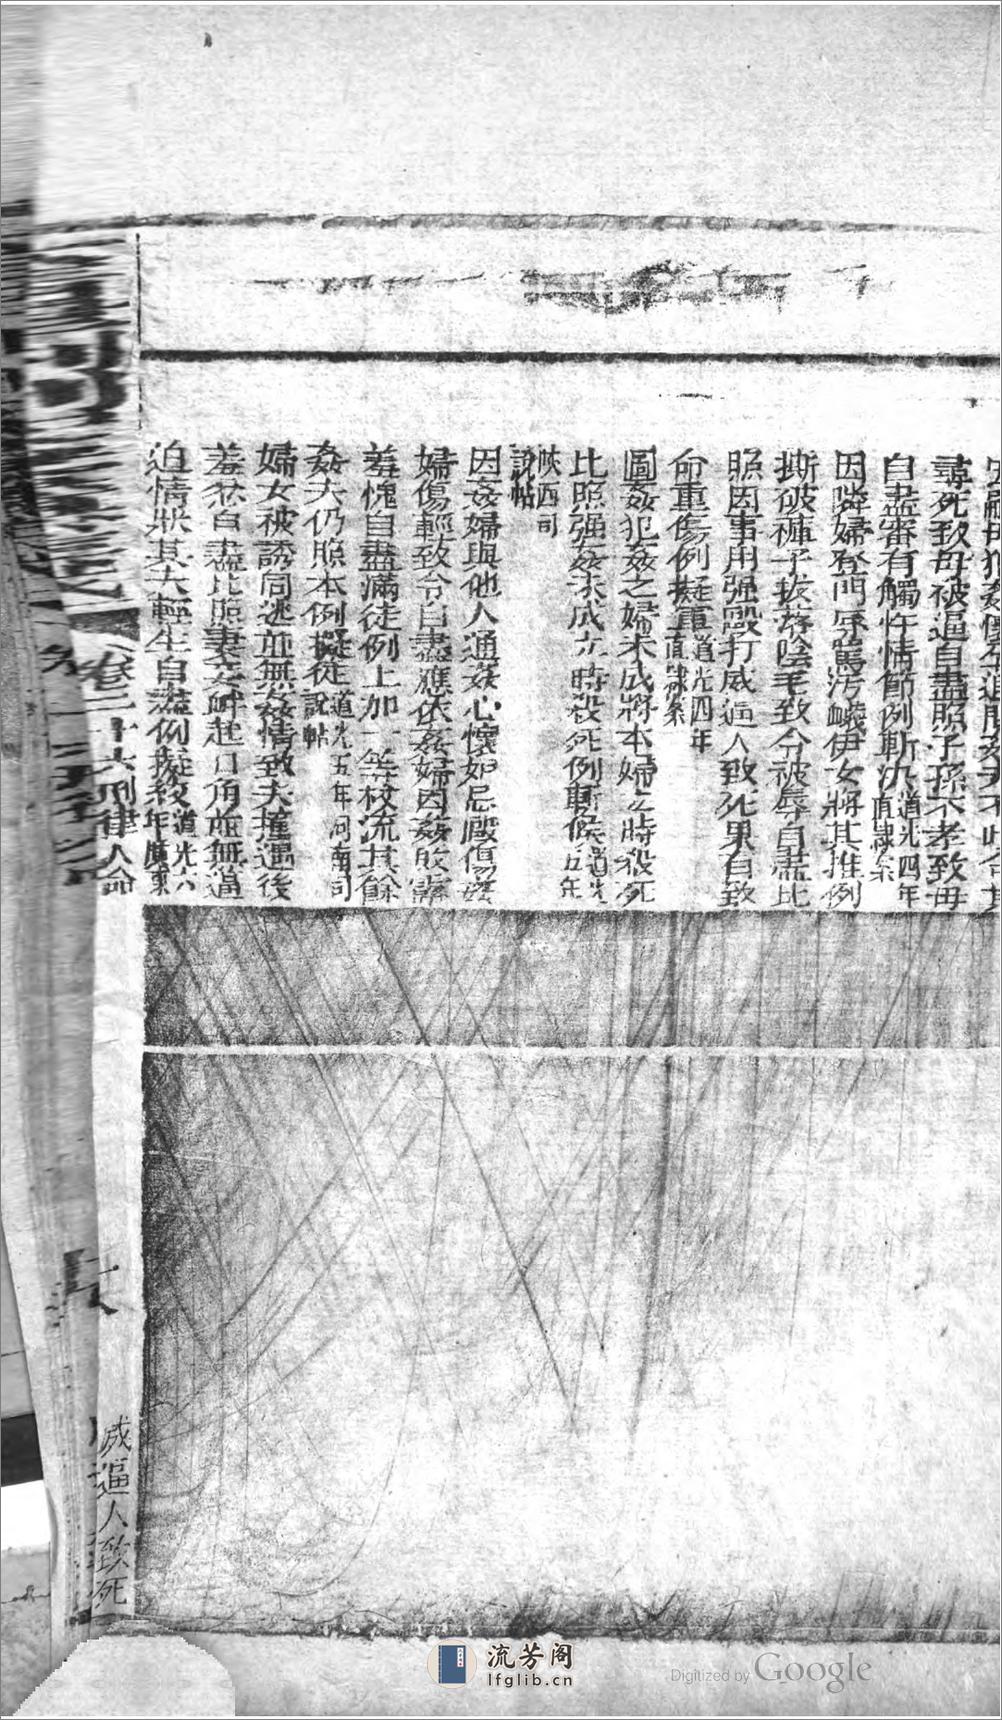 尋死致母被逼自盡照子孫不孝致母
自盡審有觸忤情節例斬決道光四年直隸案
因隣婦登門辱罵污衊伊女將其推倒
撕破褲子拔落陰毛致令被辱自盡比
照因事用强毆打威逼人致死果有致
命重傷例擬軍道光四年直隸案
圖姦犯姦之婦未成將本婦立時殺死
比照强姦未成立時殺死例斬候道光五年
陝西司說帖
因姦婦與他人通姦心懷妬忌毆傷姦
婦傷輕致令自盡應依姦婦因姦敗露
羞愧自盡滿徒例上加一等杖流其餘
姦夫仍照本例擬徒道光五年河南司說帖
婦女被誘同逃並無姦情致夫撞遇後
羞忿自盡比照妻妾衅起口角並無逼
迫情狀其夫輕生自盡例擬絞道光六年廣東
卷二十六刑律人命
威逼人致死
流芳阁
lfglib.cn
Digitized by Google